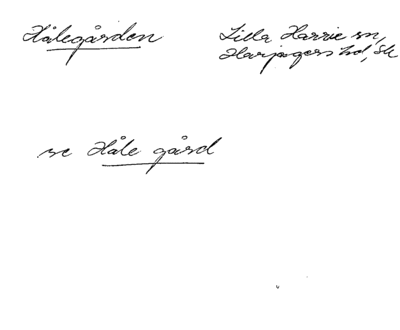 Hålegården
Lilla Harrie sn,
Harjagers hd, Sk
se Håle gård